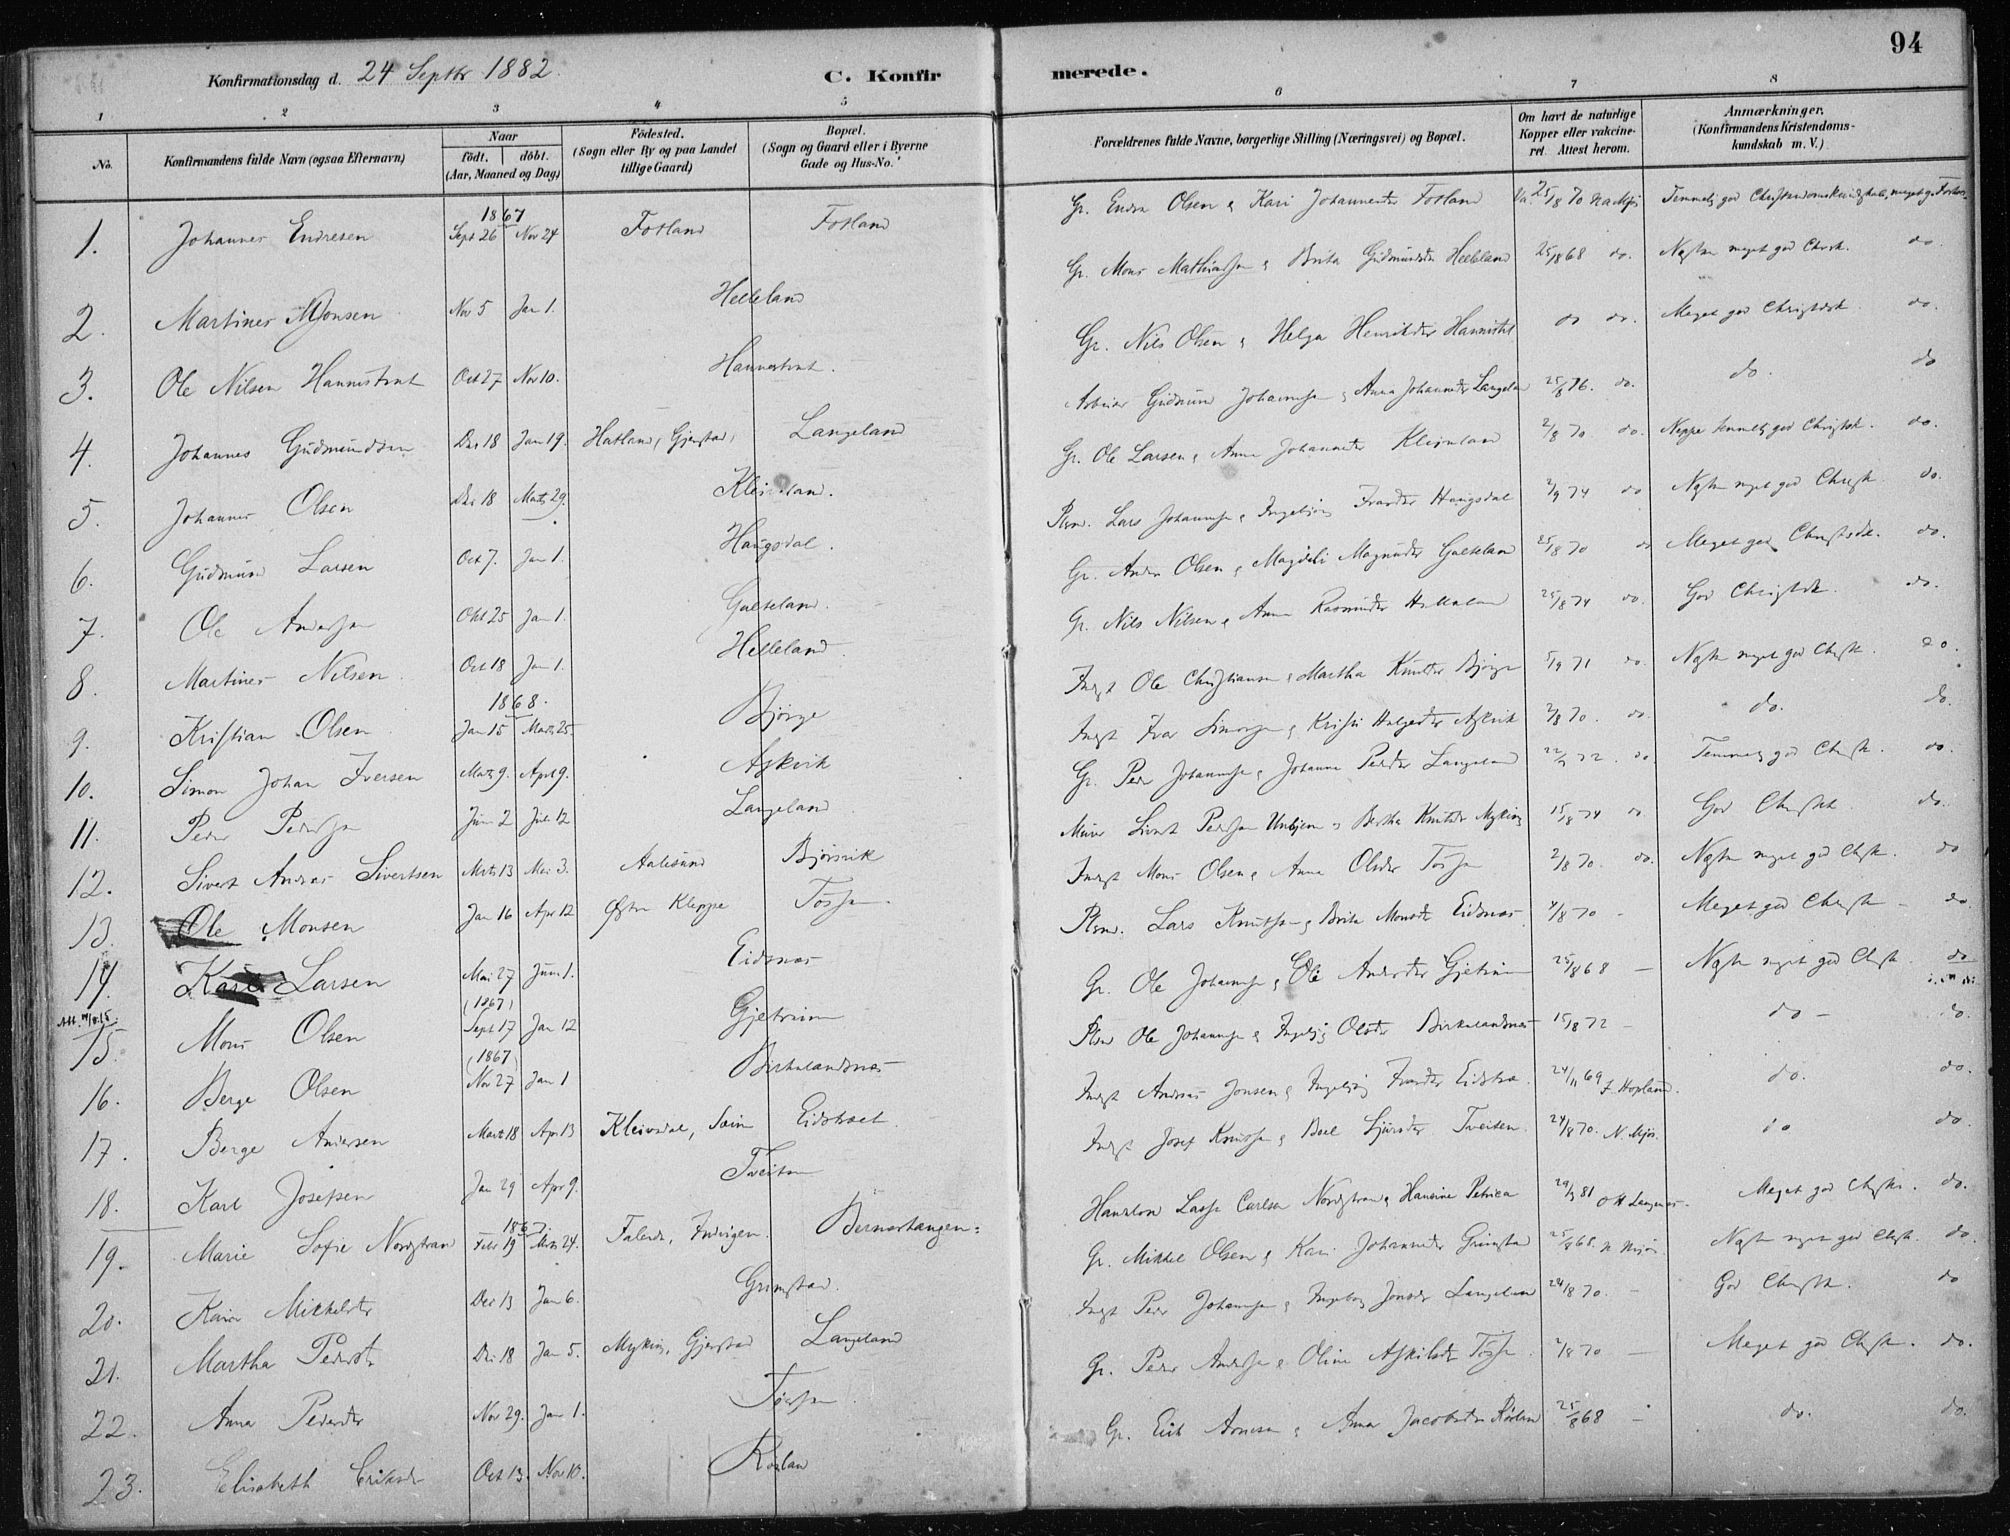 94
Konfirmationsdag d. 24 Septbr 1882.
C. Konfirmerede.
1 2 3 4 5 6 7 8
No.
Konfirmandens fulde Navn (ogsaa Efternavn)
Naar
födt. döbt.
(Aar, Maaned og Dag)
Födested.
(Sogn eller By og paa Landet
tillige Gaard)
Bopæl.
(Sogn og Gaard eller i Byerne
Gade og Hus-No.)
Forældrenes fulde Navne, borgerlige Stilling (Næringsvei) og Bopæl.
Om havt de naturlige
Kopper eller vakcine-
ret. Attest herom.
Anmærkninger.
(Konfirmandens Kristendoms-
kundskab m. V.)
1867
1. Johannes Endresen Sept 26 Nov 24 Fotland Fotland Gr. Endre Olsen & Kari Johannesdtr Fotland 25/8 70 Temmelig god Christendomskundskab, meget g. Forhold
2. Martines Monsen Nov 5 Jan 1. Helleland Gr. Mons Mathiassen & Brita Gudmundsdtr Helleland 25/8 68 do. Næsten meget god Chrsk. do.
3. Ole Nilsen Hannistveit Oct 27 Nov 10. Gr. Nils Olsen & Helga Henriksdtr do do. Meget god Christdsk. do.
4. Johannes Gudmundsen Dec 18 Jan 19. Hatland, Gjerstad, Langeland Gudmund Johannessen & Anna Johannesdtr Langeland 25/8 76. do. do. do
5. Johannes Olsen Dec 18 Marts 29. Kleiveland. Gr. Ole Larsen & Anna Johannesdtr Kleiveland 2/8 70 do. Neppe temmelig god Christdsk. do.
6. Gudmund Larsen Oct 7. Jan 1. Haugsdal. Lars Johannessen & Ingebjørg Ivarsdtr Haugsdal 2/9 74 do Næsten meget god Christk. do.
7. Ole Andersen Okt 25 Jan 1. Galteland. Gr. Anders Olsen & Magdeli Magnusdtr Galteland 25/8 70 do Meget god Christdsk. do.
8. Martines Nilsen Oct 18 Jan 1. Helleland Gr. Nils Nilsen & Anna Rasmusdtr Helleland 25/8 74 do. God Christdsk. do.
1868.
9. Kristian Olsen Jan 15 Marts 25 Bjørge Indst Ole Christiansen & Martha Knutsdtr Bjørge 5/9 71 do. Næsten meget god Chrsk. do.
10. Simon Johan Iversen Marts 9. April 9. Askvik Indst Ivar Simonsen & Kristi Helgesdtr Askvik 2/8 70. do. do. do.
11. Peder Pedersen Juni 2 Juli 12 Langeland Gr. Peder Johannessen & Johanna Pedersdtr Langeland 72. do. Temmelig god Chrsk. do.
12. Sivert Andreas Sivertsen Mrts 13 Mai 3. Aalesund Bjørsvik Murer Sivert Pedersen & Bertha Knutsdtr Myking 15/8 74 do God Chrsk. do.
13. Ole Monsen Jan 16 Apr 12 Østre Kleppe Tossen Indst Mons Olsen & Anna Olsdtr Tossen 2/8 70. do. Næsten meget god Chrsk. do
14. Karl Larsen Mai 27 Juni 1. Eidsnes Lars Knutsen & Brita Monsdtr Eidsnes 4/8 70 - Meget god Chrsk - do.
(1867)
15. Mons Olsen Sept 17 Jan 12 Gjetrim Gr. Ole Johannessen & Eli Andersdtr Gjetrim 25/8 68 - Næsten meget god Chrsk. do
(1867)
16. Berge Olsen Nov 27 Jan 1 Birkelandsnes Ole Johannessen & Ingebjg Olsdtr Birkelandsnes 15/8 72 - do - do.
17. Berge Andersen Marts 18 Apr 13 Kleivdal, Seim Eidstræt Indst Andreas Jonsen & Ingebjg Ivarsdtr 24/11 69 F. Hopland. do. do.
18. Karl Josefsen Jan 29 Apr 9. Tveiten Indst Josef Knutsen & Boel Sjursdtr Tveiten. 24/8 70. N. Mjøs do do.
1867.
19. Marie Sofie Nordstran Febr 19 Mrts 24. Indvigen. Lasse Carlsen Nordstran & Hansine Petrica 81 Meget god Chrsk. do.
20. Kari Mikkelsdtr Dec 13 Jan 6. Grimstad Gr. Mikkel Olsen & Kari Johannesdtr Grimstad 25/8 68. N Mjøs. Næsten meget god Chrsk. do.
21. Martha Pedersdtr Dec 18 Jan 5. Myking, Gjerstad Langeland Indst Peder Johannessen & Ingeborg Jonsdtr Langeland 24/8 70. - God Chrsk. do
22. Anna Pedersdtr Nov 29. Jan 1. Tossen Gr. Peder Andersen & Oline Askildsdtr Tossen 2/8 70 - Meget god Chrsk. do.
23. Elisabeth Eriksdtr Oct 13. Nov 10. Røslan Gr. Erik Arnesen & Anna Jacobsdtr Røslan 25/8 68 - do. do.